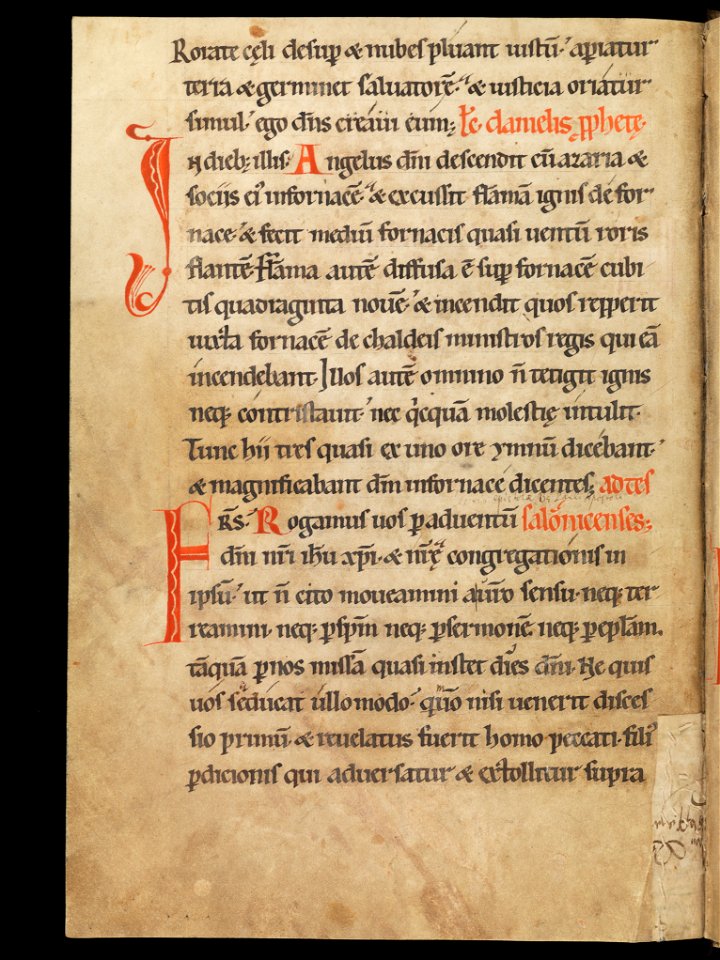 Rorate cęli desup̄ & nubes pluant iustū· apiatur
terra & germinet saluatorē· & iusticia oriatur
simul· ego dn̄s creaui eum; Łc̄. danielis ꝓphetę·
In dieb; illis· Angelus dn̄i descendit cū azaria &
sociis ei᾽ in fornacē· & excussit flāmā ignis de for
nace· & fecit mediū fornacis quasi uentū roris
flantē· Flāma autē diffusa ē sup̄ fornacē cubi
tis quadraginta nouē· & incendit quos repperit
iuxta fornacē de chaldeis ministros regis qui eā
incendebant· Illos autē omnino n̄ tetigit ignis
neq; contristauit· nec qͥcquā molestię intulit·
Tunc hii tres quasi ex uno ore ymnū dicebant·
& magnificabant dn̄m in fornace dicentes; ad tes
FR̄S· Rogamus uos ꝑ aduentū salonicenses;
dn̄i nr̄i ih̄u xp̄i· & nr̄ę congregationis in
ipsū· ut n̄ cito moueamini a ur̄o sensu· neq; ter
reamini· neq; ꝑ sp̄m neq; ꝑ sermonē neq; ꝑ epłam·
tāquā ꝑ nos missā quasi instet dies dn̄i· Ne quis
uos seducat ullo modo· qm̄o nisi uenerit disces
sio primū· & reuelatus fuerit homo peccati· fili᾽
ꝑdicionis qui aduersatur & extollitur supra